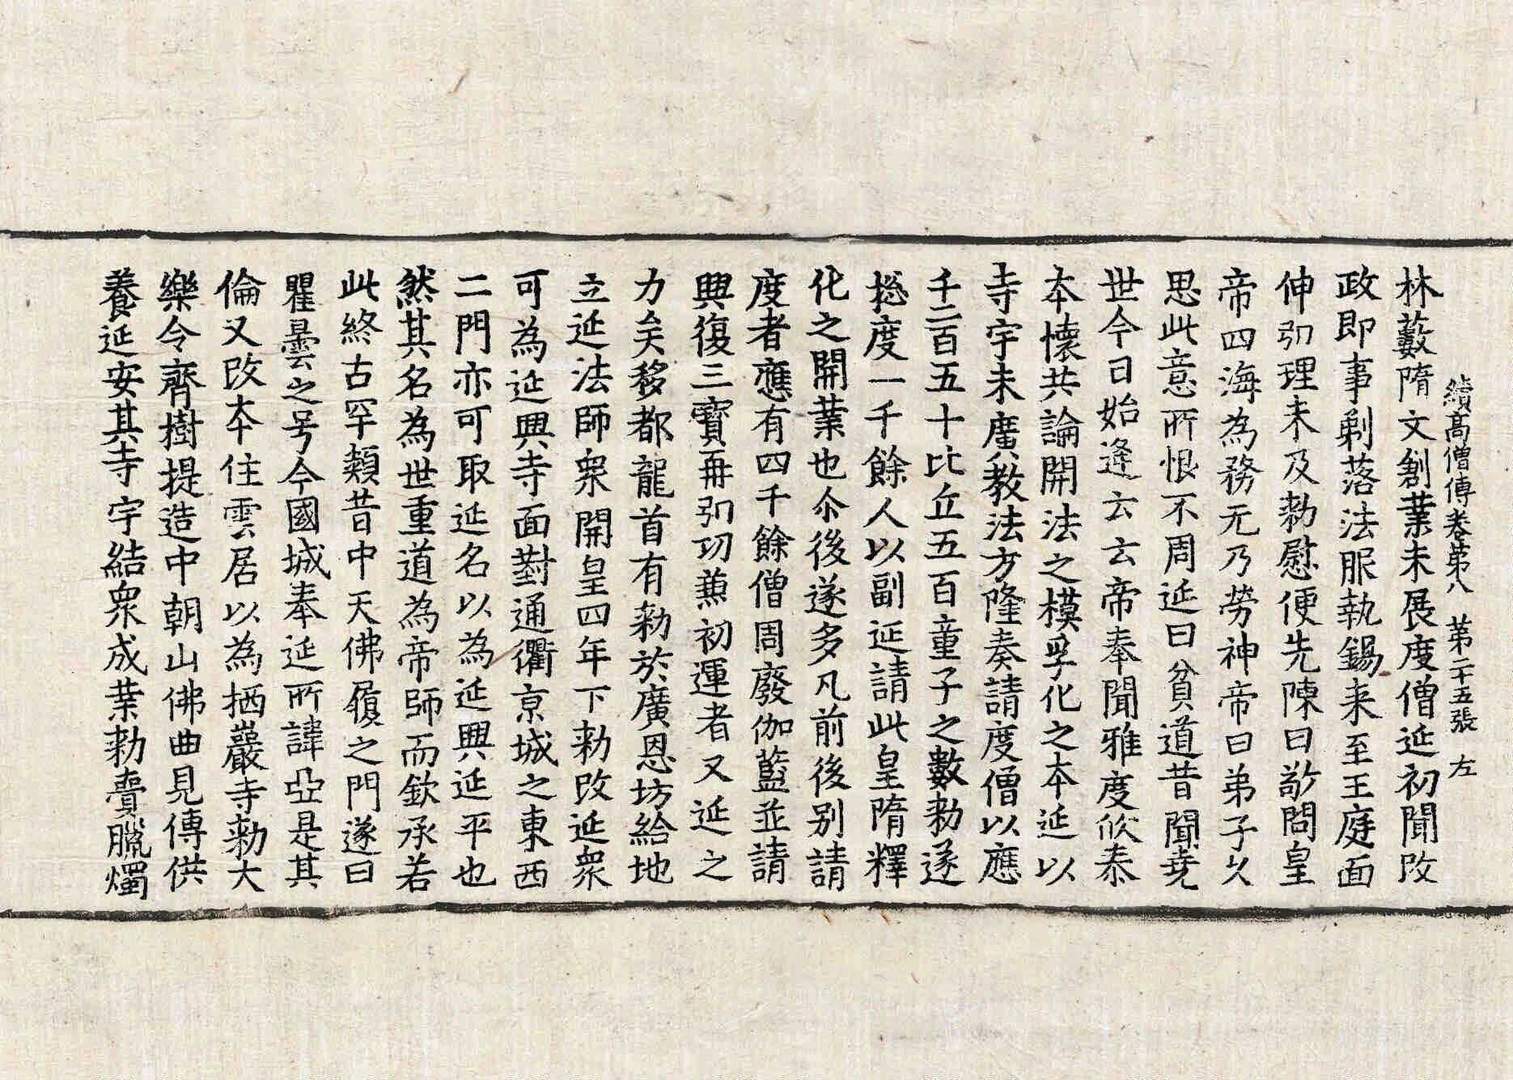 續高僧傳卷第八　第二十五張　左
林藪隋文創業未展度僧延初聞改
政即事剃落法服執錫来至王庭面
伸弘理未及勑慰便先陳曰敬問皇
帝四海為務无乃勞神帝曰弟子久
思此意所恨不周延曰貧道昔聞堯
世今日始逢云云帝奉聞雅度欣泰
本懷共論開法之模孚化之本延以
寺宇未廣教法方隆奏請度僧以應
千二百五十比丘五百童子之數勑遂
揔度一千餘人以副延請此皇隋釋
化之開業也尒後遂多凡前後别請
度者應有四千餘僧周廢伽藍並請
興復三寶再弘功兼初運者又延之
力矣移都龍首有勑於廣恩坊給地
立延法師衆開皇四年下勑改延衆
可為延興寺面對通衢亰城之東西
二門亦可取延名以為延興延平也
然其名為世重道為帝師而欽承若
此終古罕類昔中天佛履之門遂曰
瞿曇之号今國城奉延所諱亞是其
倫又改本住雲居以為栖巖寺勑大
樂令齊樹提造中朝山佛曲見傳供
養延安其寺宇結衆成業勑賷臘燭